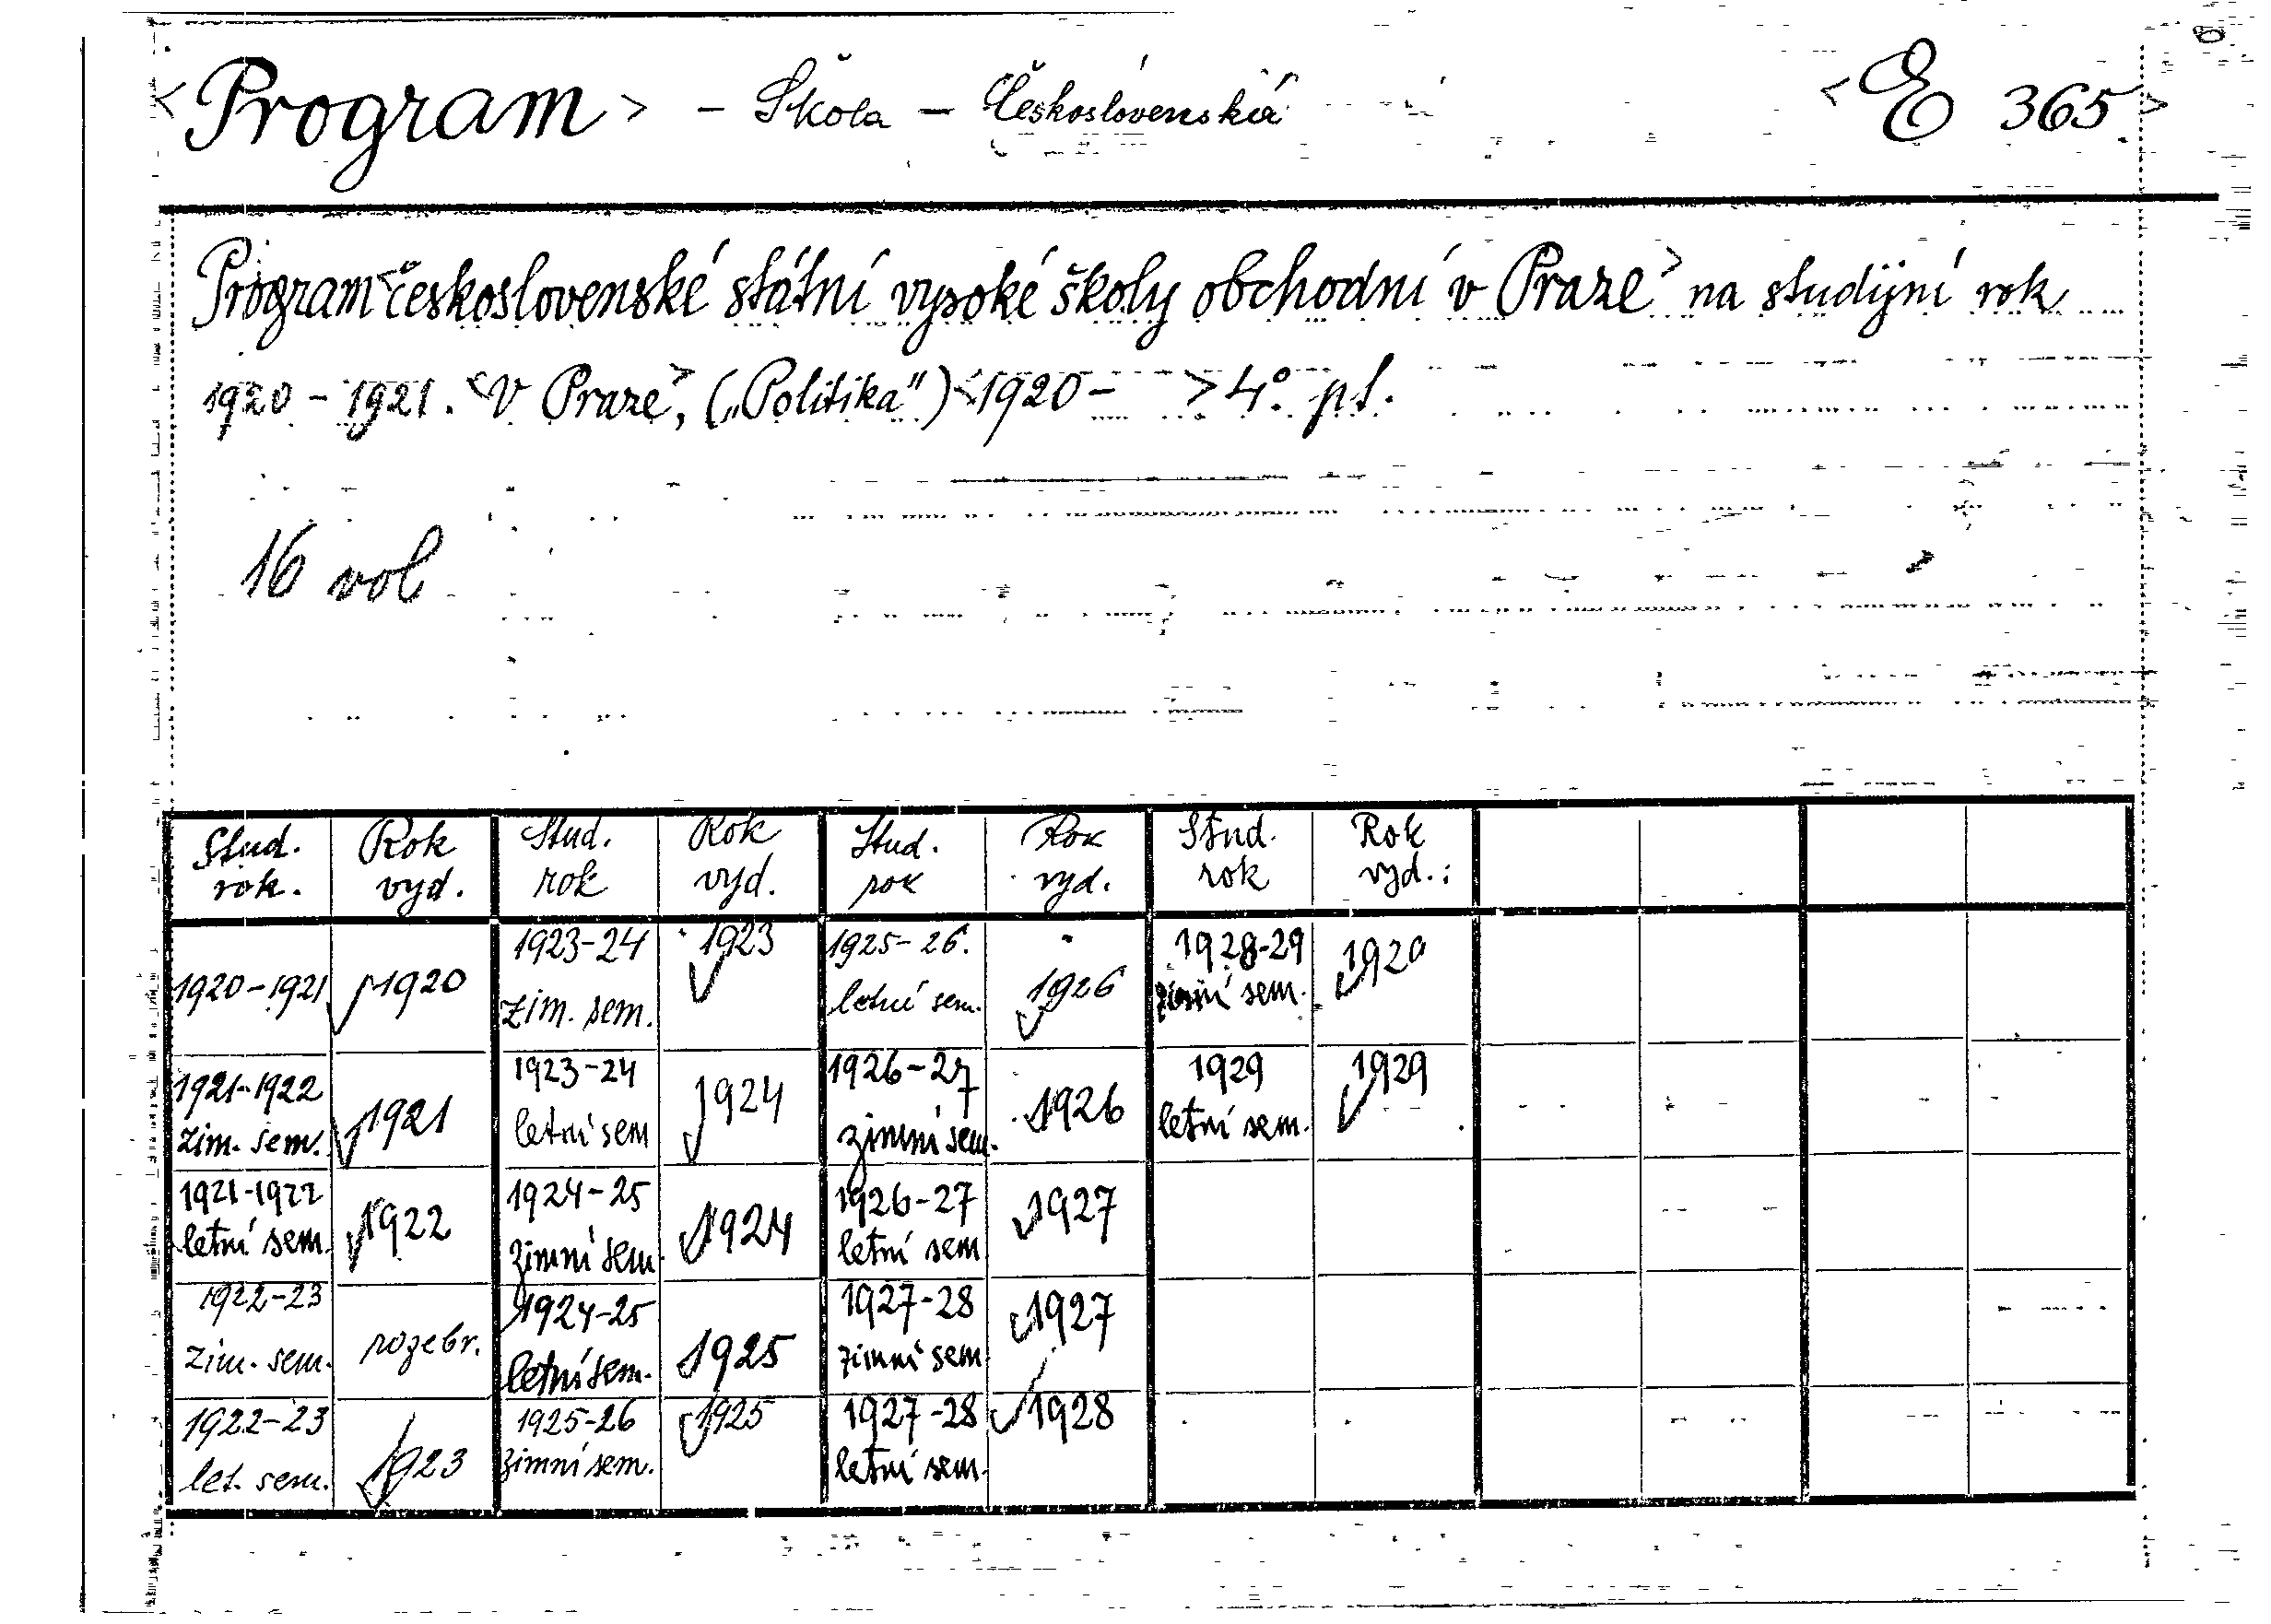 <Program> - Škola - Československá
<E 365.>
Program <československé státní vysoké školy obchodní v Praze> na studijní rok
1920 - 1921. <V Praze>, („Politika") <1920 - > 4°. pł.
16 vol
Stud. rok. Rok vyd. Stud. rok Rok vyd. Stud. rok Rok vyd. Stud. rok Rok vyd.:
1920-1921 1920 1923-24 zim. sem. 1923 1925-26. letní sem. 1926 1928-29 zimní sem. 1929
1921-1922 zim. sem. 1921 1923-24 letní sem 1924 1926-27 zimní sem. 1926 1929 letní sem. 1929
1921-1922 letní sem. 1922 1924-25 zimní sem. 1924 1926-27 letní sem 1927
1922-23 zim. sem. rozebr. 1924-25 letní sem. 1925 1927-28 zimní sem 1927
1922-23 let. sem. 1923 1925-26 zimní sem. 1925 1927-28 letní sem. 1928